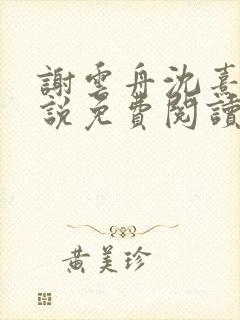 謝雲舟沈熹
說免費閱讀
黃美珍